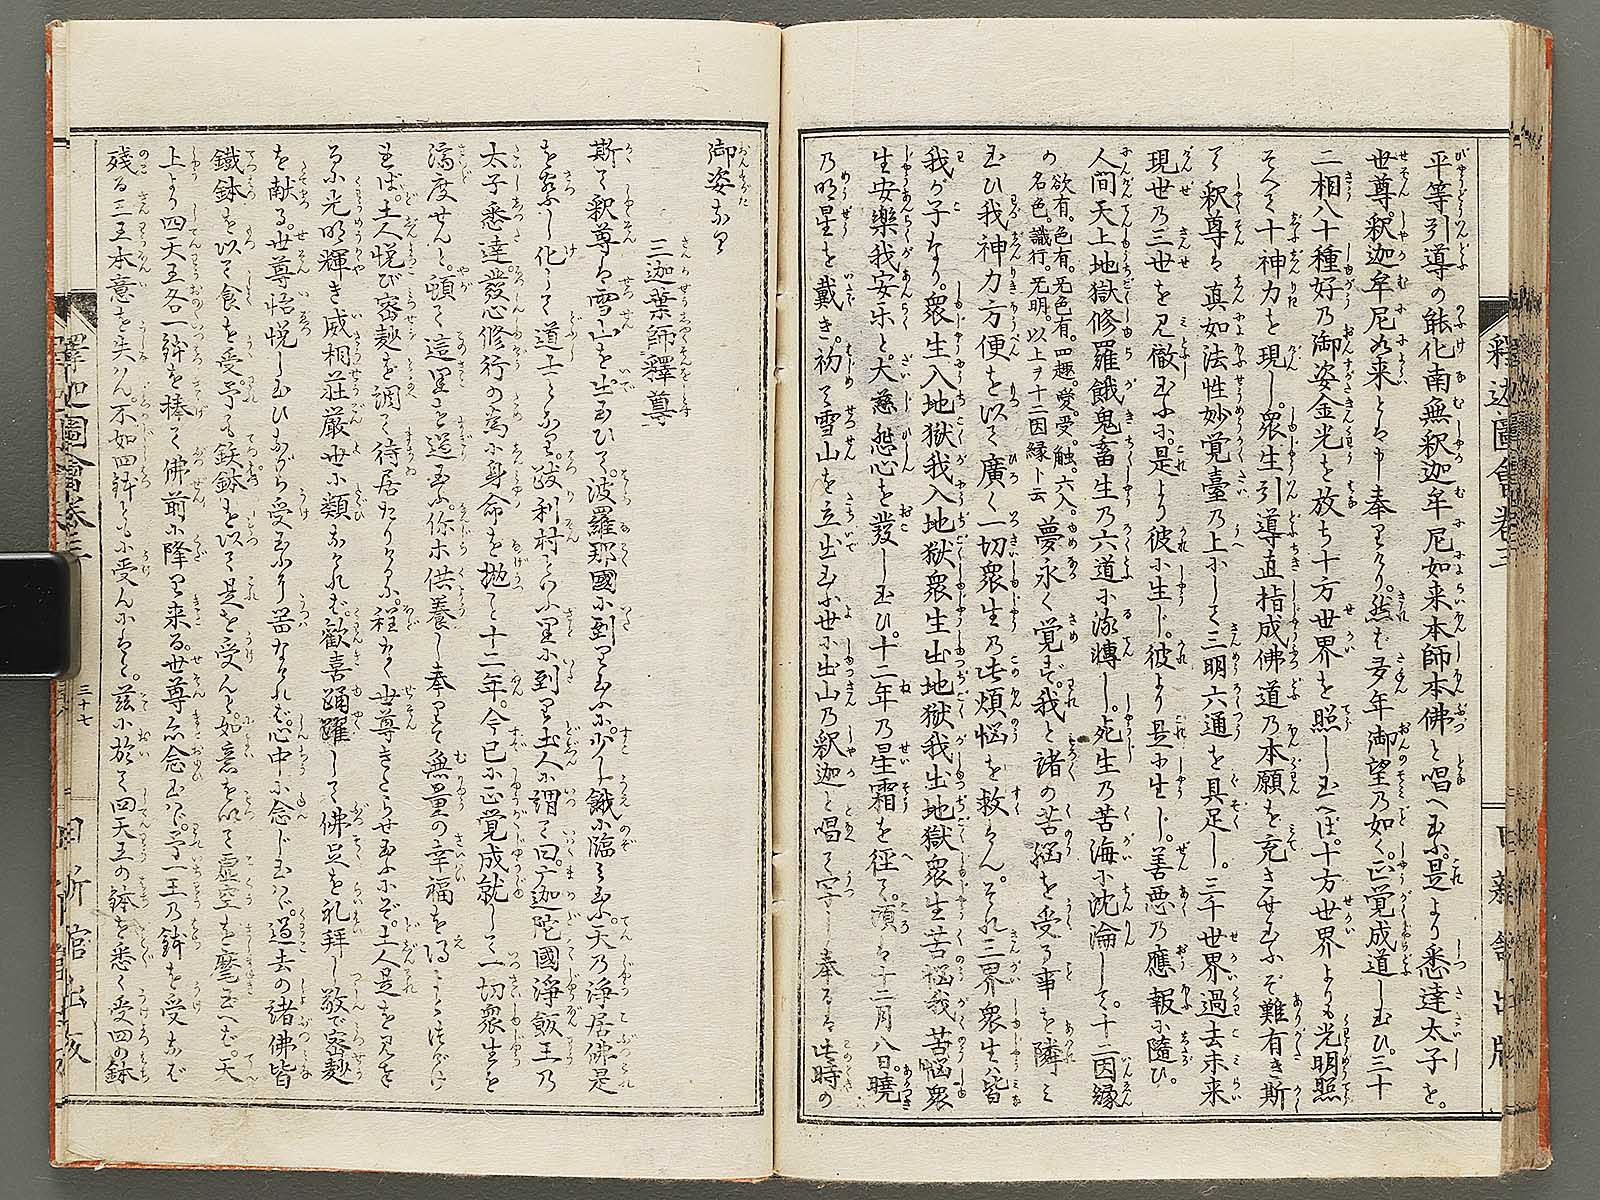 平等引導の能化南無釈迦牟尼如来本師本佛と唱へ玉ふ是より悉達太子を。
世尊。釈迦牟尼如来とハ申し奉りけり。然ば多年御望乃如く。正覚成道し玉ひ。三十
二相八十種好乃御姿金光を放ち十方世界を照し玉へば。十方世界よりも光明照
そへて十神力を現し。衆生引導直指成佛道乃本願を充させ玉ふぞ難有き斯
て釈尊ハ真如法性妙覚臺乃上にして三明六通を具足し。三千世界過去未来
現世乃三世を見徹玉ふに。是より彼に生じ。彼より是に生じ。善悪乃應報に隨ひ。
人間天上地獄修羅餓鬼畜生乃六道に流轉し。死生乃苦海に沈淪して。十二因縁
の
欲有。色有。无色有。四趣。愛。受。触。六入。
名色。識行。无明。以上ヲ十二因縁ト云
夢永く覚ず。我と諸の苦悩を受る事を隣ミ
玉ひ我神力方便を以て廣く一切衆生乃此煩悩を救はん。それ三界衆生ハ皆
我が子なり。衆生入地獄我入地獄衆生出地獄我出地獄衆生苦悩我苦悩衆
生安樂我安乐と。大慈悲心を發し玉ひ。十二年乃星霜を径て。頃ハ十二月八日。暁
乃明星を戴き。初て雪山を立出玉ふ世に出山乃釈迦と唱て寫し奉るハ此時の
御姿なり
三迦葉師釋尊
斯て釈尊ハ雪山を出玉ひて。波羅那國に到り玉ふに。少し餓に臨ミ玉ふ。天乃浄居佛是
を察し化して道士となり。跋利村といふ里に到り土人に謂て曰。迦陀國浄飯王乃
太子悉達。發心修行の為に身命を抛こと十二年。今已に正覚成就して一切衆生を
濟度せんと。頓て這里を過玉ふ。你ホ供養し奉りて無量の幸福を得よと
土人悦び密麨を調て待居たりけるに。程なく世尊きたらせ玉ふにぞ。土人是を見奉
るに光明輝き威相荘厳世に類なけれバ。歓喜踊躍して佛足を礼拜し敬で密麨
を献る。世尊怡悦し玉ひながら受玉ふべき器なければ。心中に念じ玉ハく。過去の諸佛皆
鐵鉢を以て食を受。予も鉄鉢を以て是を受んと。如意を以て虚空を麾玉へば。天
上より四天王各一鉢を捧て佛前に降り来る。世尊亦念玉ハく。予一王乃鉢を受なば
残る三王本意を失ハん。不如四鉢ともに受んにハと。茲に於て四天王の鉢を悉く受四の鉢
釋迦圖會巻三
釋迦圖會巻三
三十七